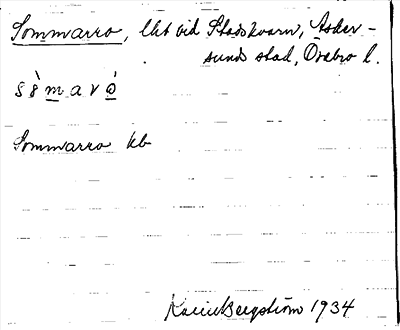 Sommarro, lht vid Stadskvarn, Asker-
sunds stad, Örebro l.
Sommarro kb
Karin Bergström 1934